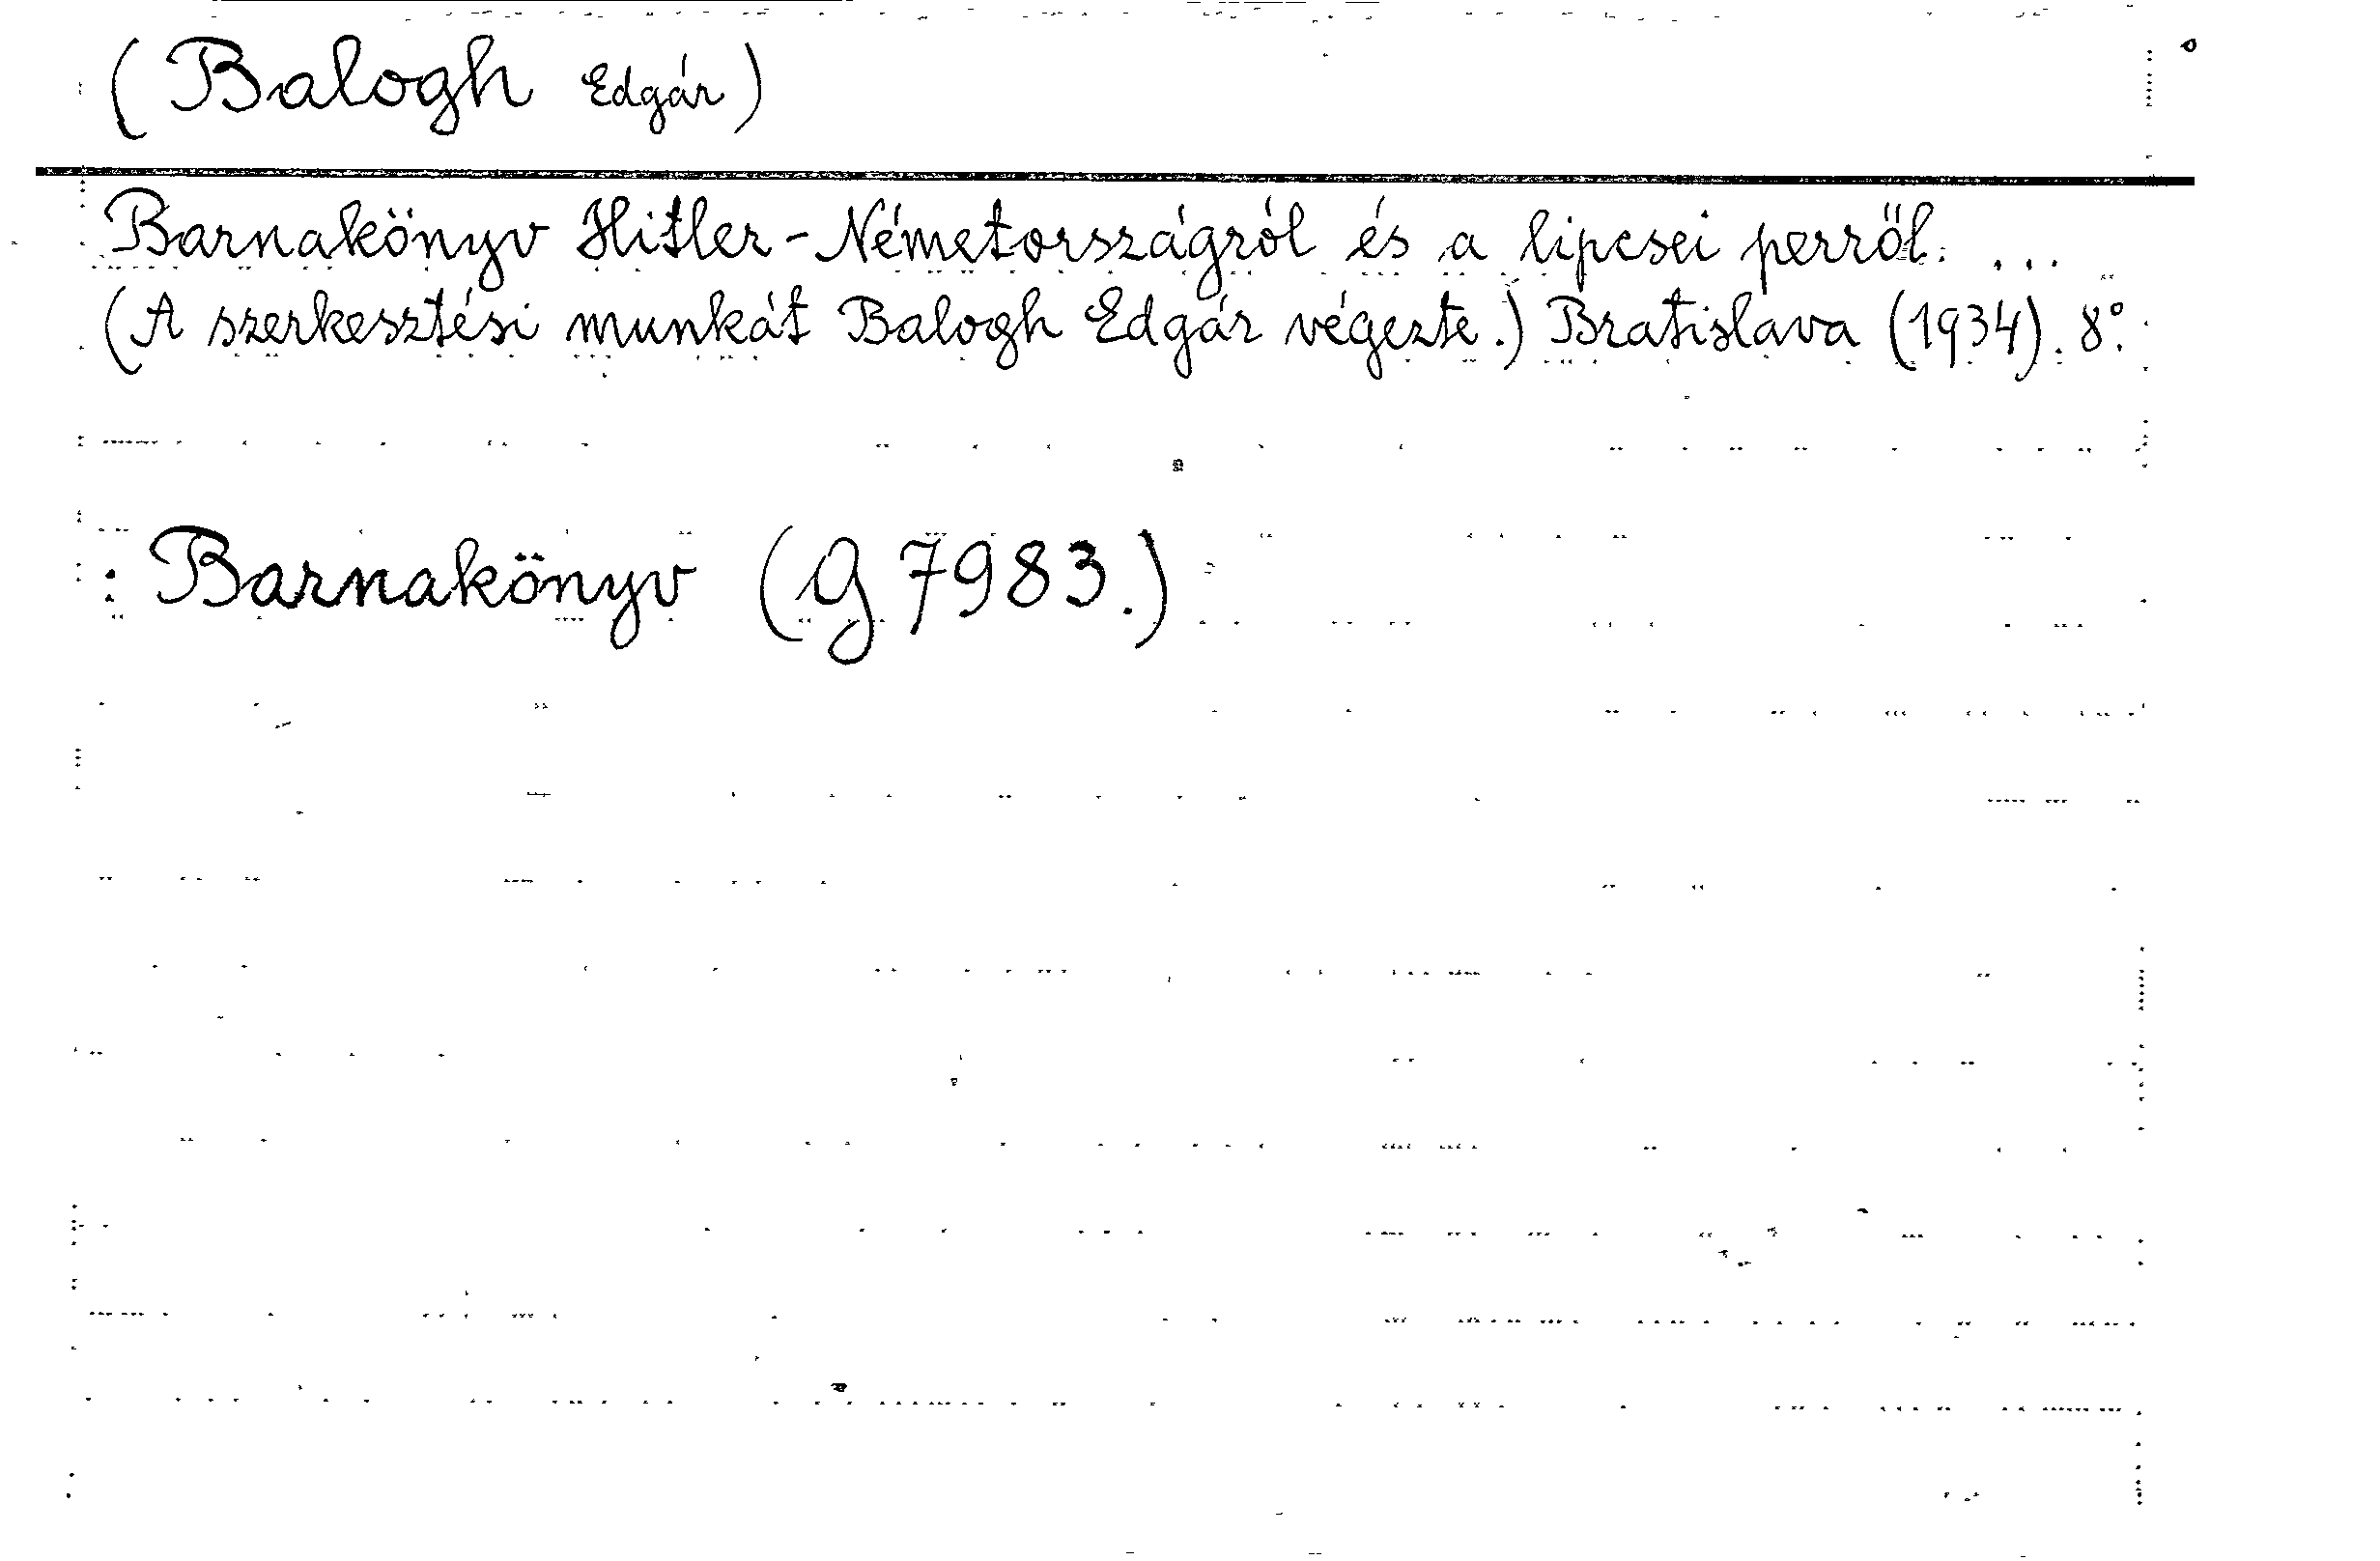 (Balogh Edgár)
Barnakönyv Hitler-Németországról és a lipcsei perről. ...
(A szerkesztési munkát Balogh Edgár végezte.) Bratislava (1934). 8°.
: Barnakönyv (G 7983.)